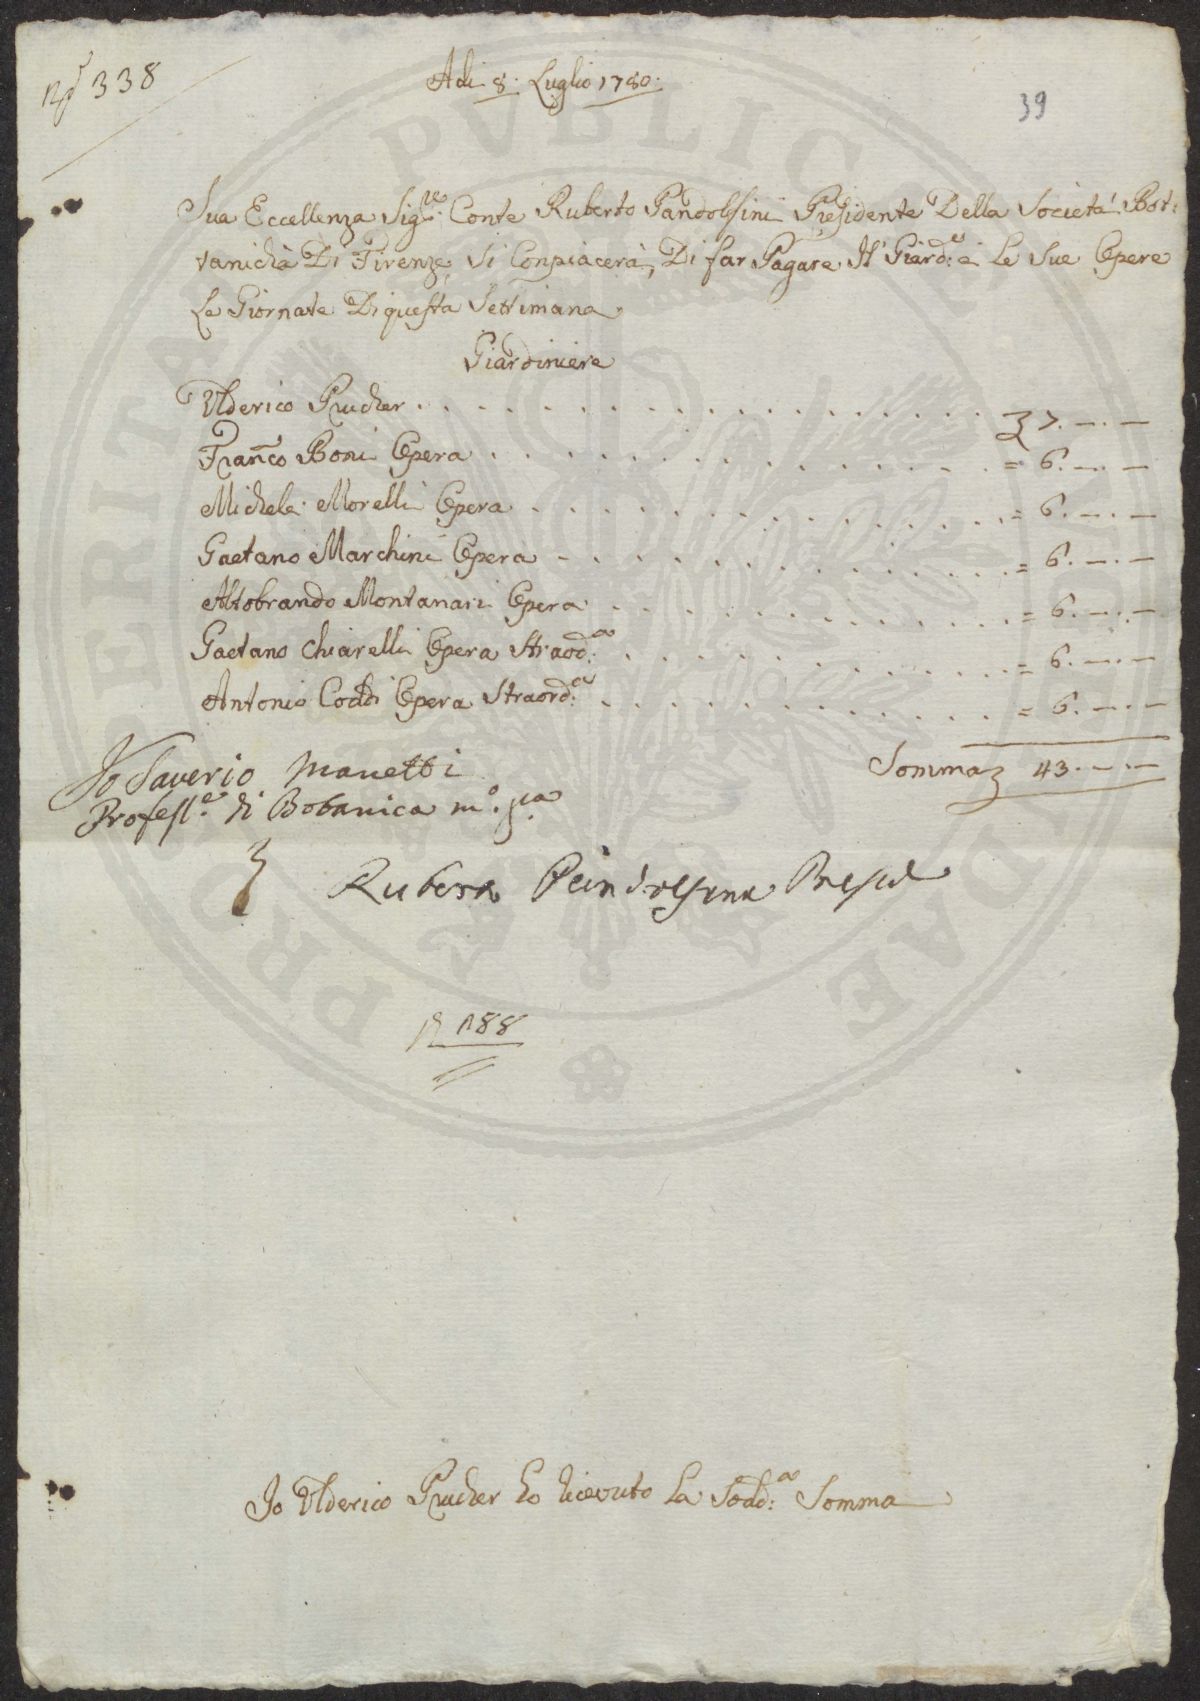 N° 338
Adi 8: Luglio 1780:
39
Sua Eccellenza Sig:re Conte Ruberto Pandolfini Presidente Della Società Bot:
tanicha Di Firenze, Si Conpiacerà, Di far Pagare Il Giard:e e Le Sue Opere
Le Giornate Di questa Settimana
Giardiniere
Ulderico Prucher . . . . . . . . . . . . . . . . . . £ 7. —. —
Franc̃o Boni Opera . . . . . . . . . . . . . . . = 6. —. —
Michele Morelli Opera . . . . . . . . . . . . . . = 6. —. —
Gaetano Marchini Opera . . . . . . . . . . . . . = 6. —. —
Altobrando Montanari Opera . . . . . . . . . . . . = 6. —. —
Gaetano Chiarelli Opera Straod:a . . . . . . . . . . . = 6. —. —
Antonio Coddi Opera Straord:a . . . . . . . . . . . = 6. —. —
Somma £ 43. —. —
Io Saverio Manetti
Profess.e di Botanica m.o p.a
Ruberto Pandolfini Presid
N 188
Io Ulderico Prucher ho ricevuto La Sodd:a Somma
PROSPERITATI PVBLICAE AVGENDAE